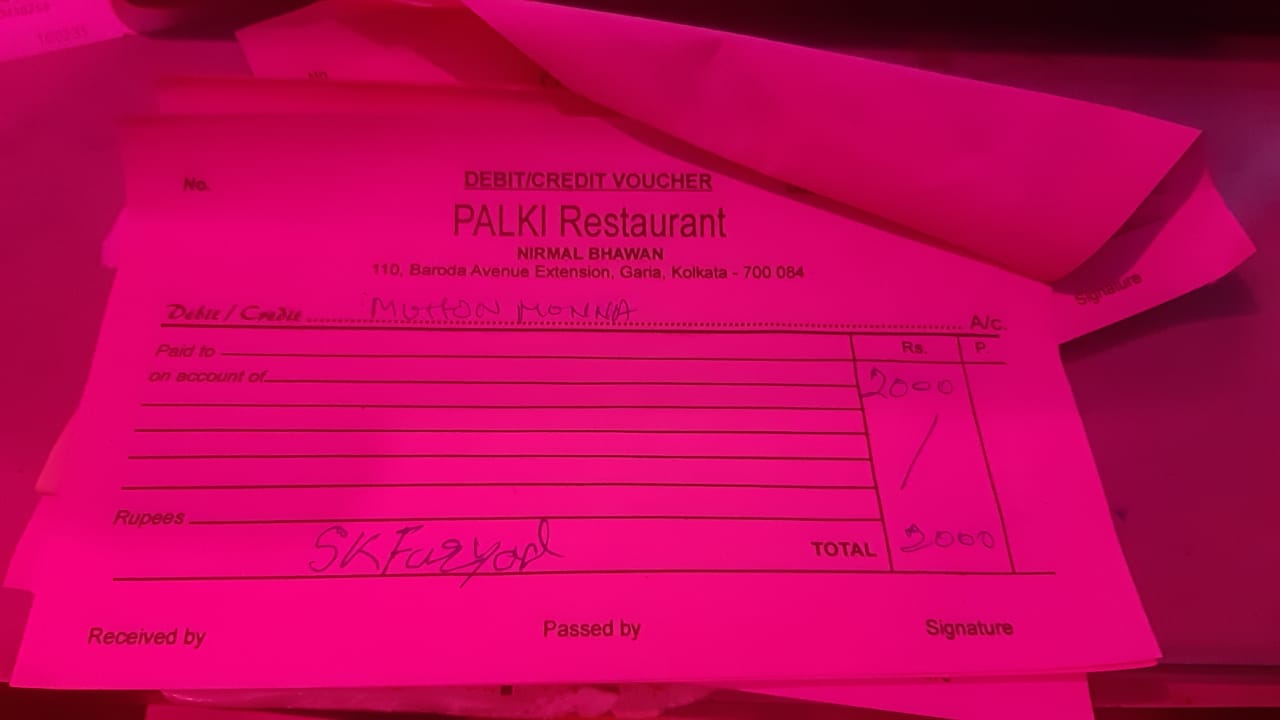 16:02:35
No.
No.
DEBIT/CREDIT VOUCHER
PALKI Restaurant
NIRMAL BHAWAN
110, Baroda Avenue Extension, Garia, Kolkata - 700 084
Signature
Debit / Credit MUTTON MONNA A/c.
Rs. P.
Paid to
on account of 2000
/
Rupees
SK Faryad
TOTAL 2000
Received by Passed by Signature